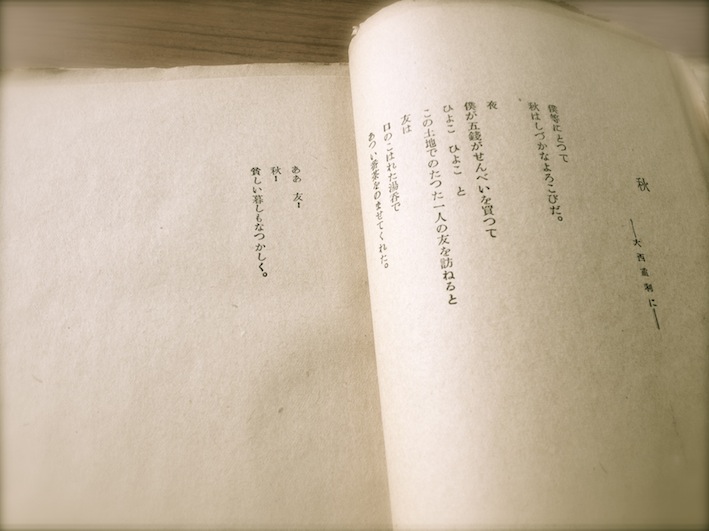 秋
――大西重利に――
僕等にとつて
秋はしづかなよろこびだ。
夜
僕が五錢がせんべいを買つて
ひよこ ひよこ と
この土地でのたつた一人の友を訪ねると
友は
口のこはれた湯呑で
あつい番茶をのませてくれた。
ああ 友!
秋!
貧しい暮しもなつかしく。